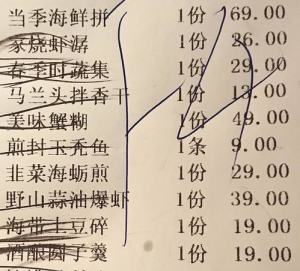 当季海鲜拼 1份 69.00
家烧虾潺 1份 26.00
春季时蔬集 1份 29.00
马兰头拌香干 1份 13.00
美味蟹糊 1份 49.00
煎封玉秃鱼 1条 9.00
韭菜海蛎煎 1份 29.00
野山蒜油爆虾 1份 39.00
海带土豆碎 1份 19.00
酒酿圆子羹 1份 19.00